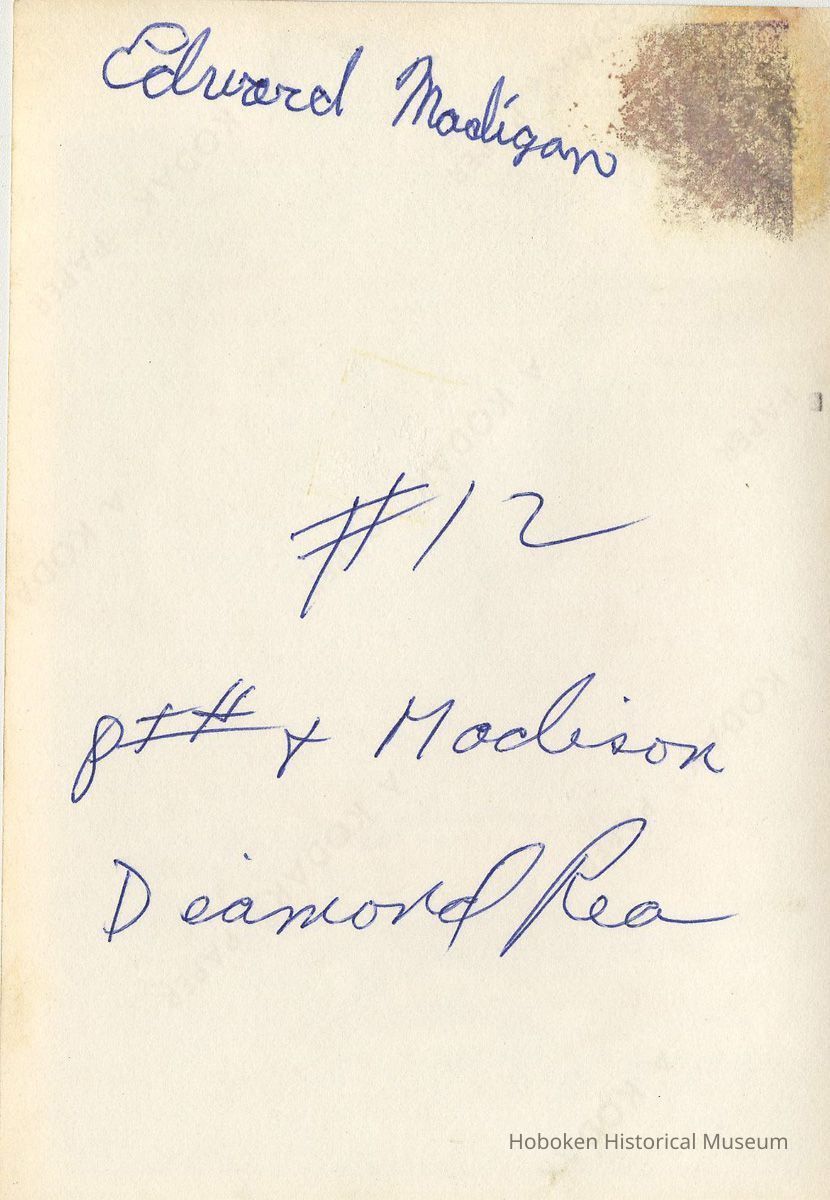 Edward Madigan
#12
8th & Madison
Diamond Rea
Hoboken Historical Museum